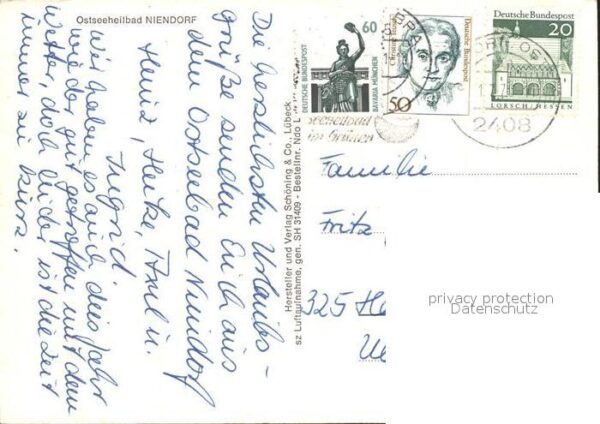 Ostseeheilbad NIENDORF
Die herzlichsten Urlaubs-
grüße senden Euch aus
dem Ostseebad Niendorf
Heinz, Heike, Axel u.
Ingrid.
Wir haben es auch dies Jahr
wieder gut getroffen mit dem
Wetter, doch leider ist die Zeit
immer zu kurz.
Hersteller und Verlag Schöning & Co., Lübeck
sz Luftaufnahme, gen. SH 31409 - Bestellnr. Ndo L
60
DEUTSCHE BUNDESPOST
BAVARIA MÜNCHEN
50
Deutsche Bundespost
Deutsche Bundespost
20
LORSCH/HESSEN
2408
Familie
Fritz
325 Ha
privacy protection
Datenschutz